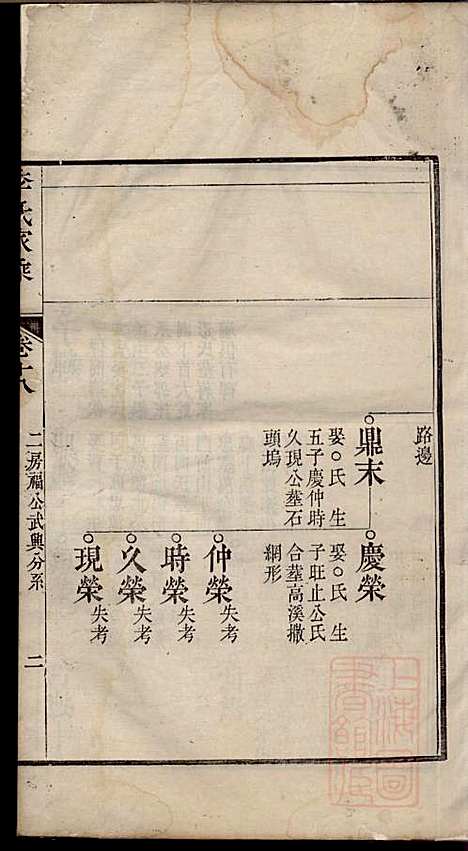 路邊
鼎末
娶○氏生
五子慶仲時
久現公墓石
頭塢
慶榮
娶○氏生
子旺止公氏
合墓高溪撒
網形
仲榮失考
時榮失考
久榮失考
現榮失考
李氏家乘
卷十八
二房福公武興分系
二
上海圖書館藏